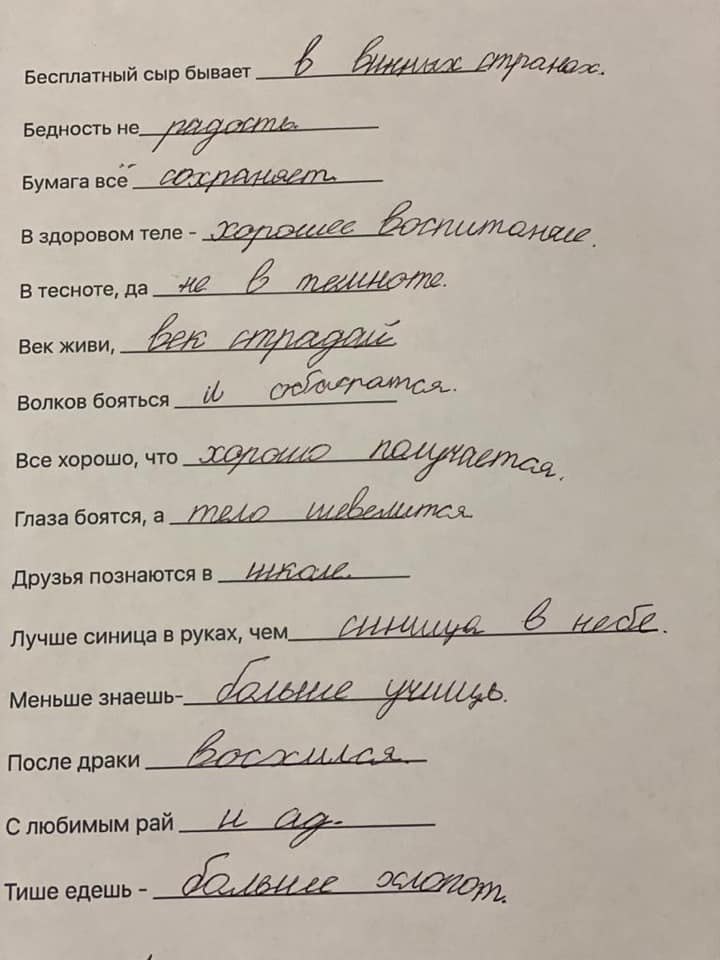 Бесплатный сыр бывает в винных странах.
Бедность не радость.
Бумага всё сохраняет.
В здоровом теле - хорошее воспитание.
В тесноте, да не в темноте.
Век живи, век страдай
Волков бояться и
Все хорошо, что хорошо получается.
Глаза боятся, а тело шевелится
Друзья познаются в школе.
Лучше синица в руках, чем синица в небе.
Меньше знаешь- больше учишь.
После драки
С любимым рай и ад.
Тише едешь - больше хлопот.